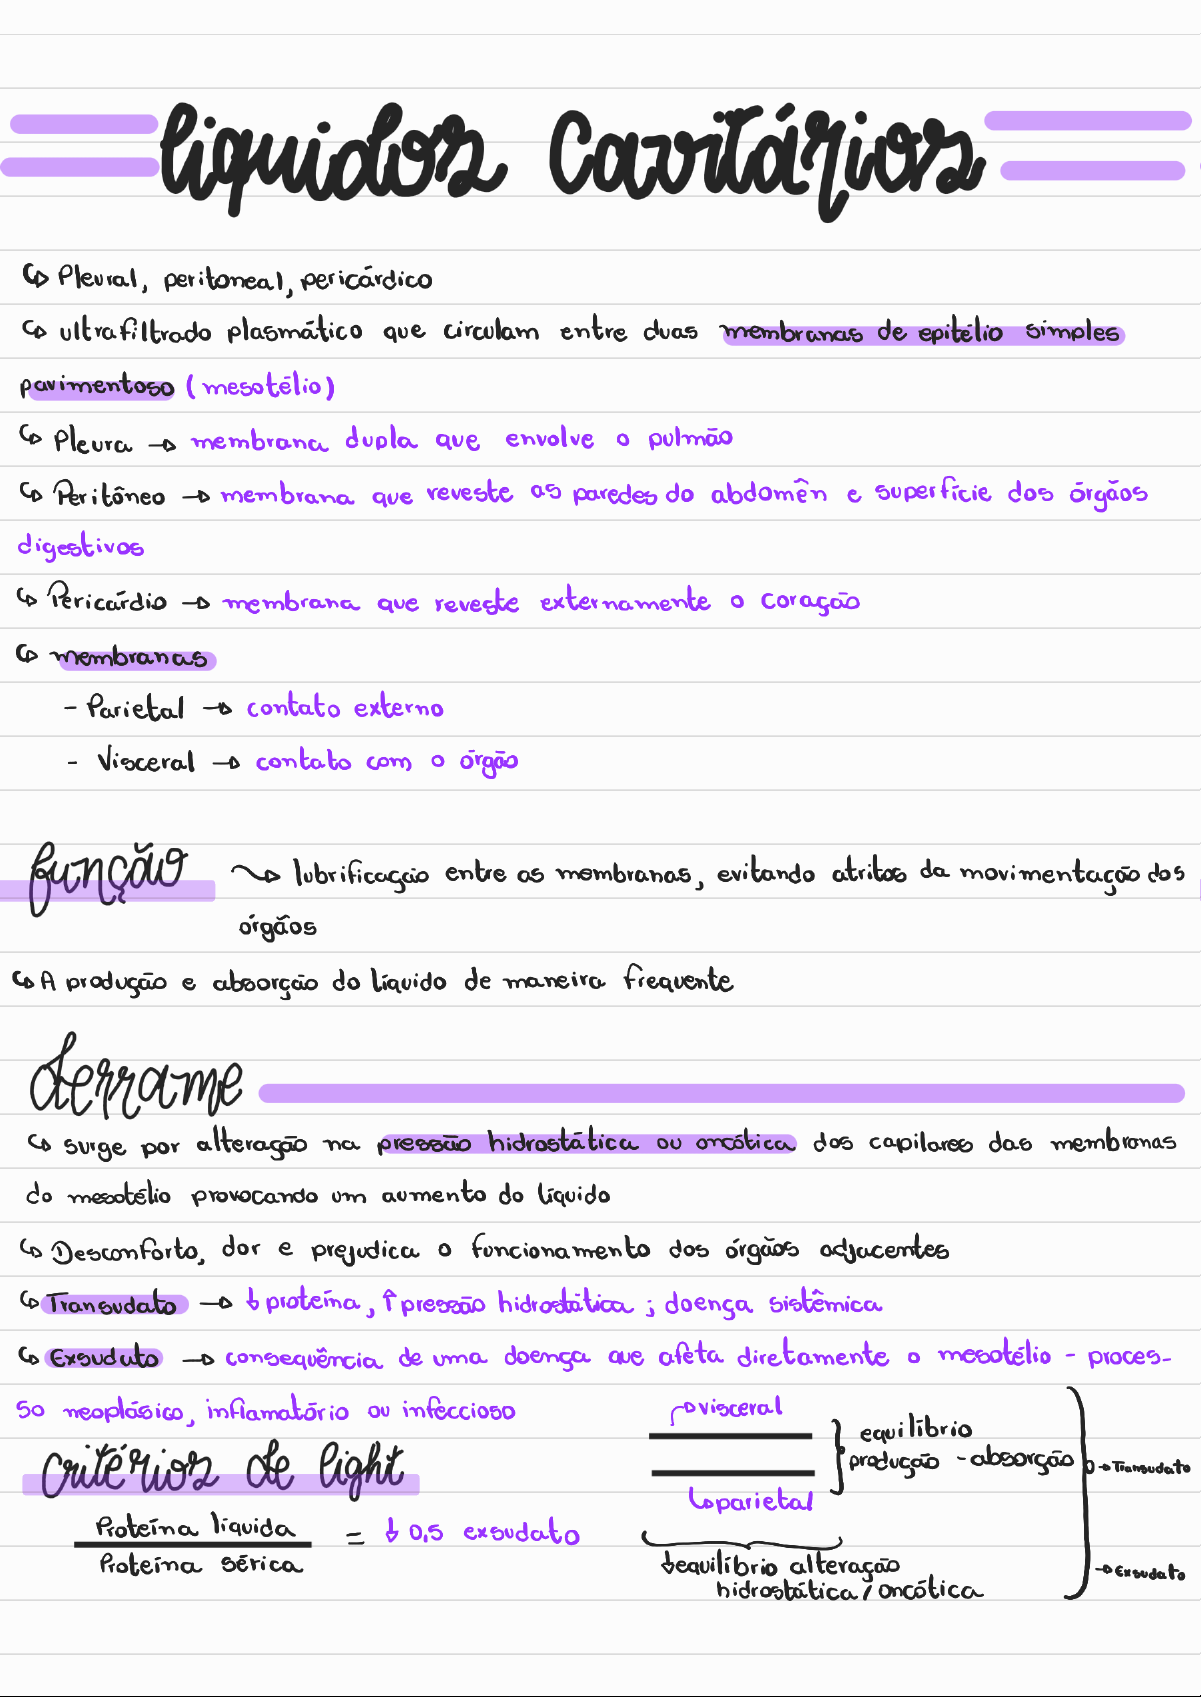 líquidos cavitários
↳ Pleural, peritoneal, pericárdico
↳ ultrafiltrado plasmático que circulam entre duas membranas de epitélio simples
pavimentoso (mesotélio)
↳ Pleura → membrana dupla que envolve o pulmão
↳ Peritôneo → membrana que reveste as paredes do abdomên e superfície dos órgãos
digestivos
↳ Pericárdio → membrana que reveste externamente o coração
↳ membranas
- Parietal → contato externo
- Visceral → contato com o órgão
função → lubrificação entre as membranas, evitando atritos da movimentação dos
órgãos
↳ A produção e absorção do líquido de maneira frequente
derrame
↳ surge por alteração na pressão hidrostática ou oncótica dos capilares das membranas
do mesotélio provocando um aumento do líquido
↳ Desconforto, dor e prejudica o funcionamento dos órgãos adjacentes
↳ Transudato → ↓ proteína, ↑ pressão hidrostática ; doença sistêmica
↳ Exsudato → consequência de uma doença que afeta diretamente o mesotélio - proces-
so neoplásico, inflamatório ou infeccioso
critérios de light
Proteína líquida
Proteína sérica
= ↓ 0,5 exsudato
→ visceral
↳ parietal
equilíbrio
produção - absorção
↓ equilíbrio alteração
hidrostática / oncótica
→ Transudato
→ Exsudato